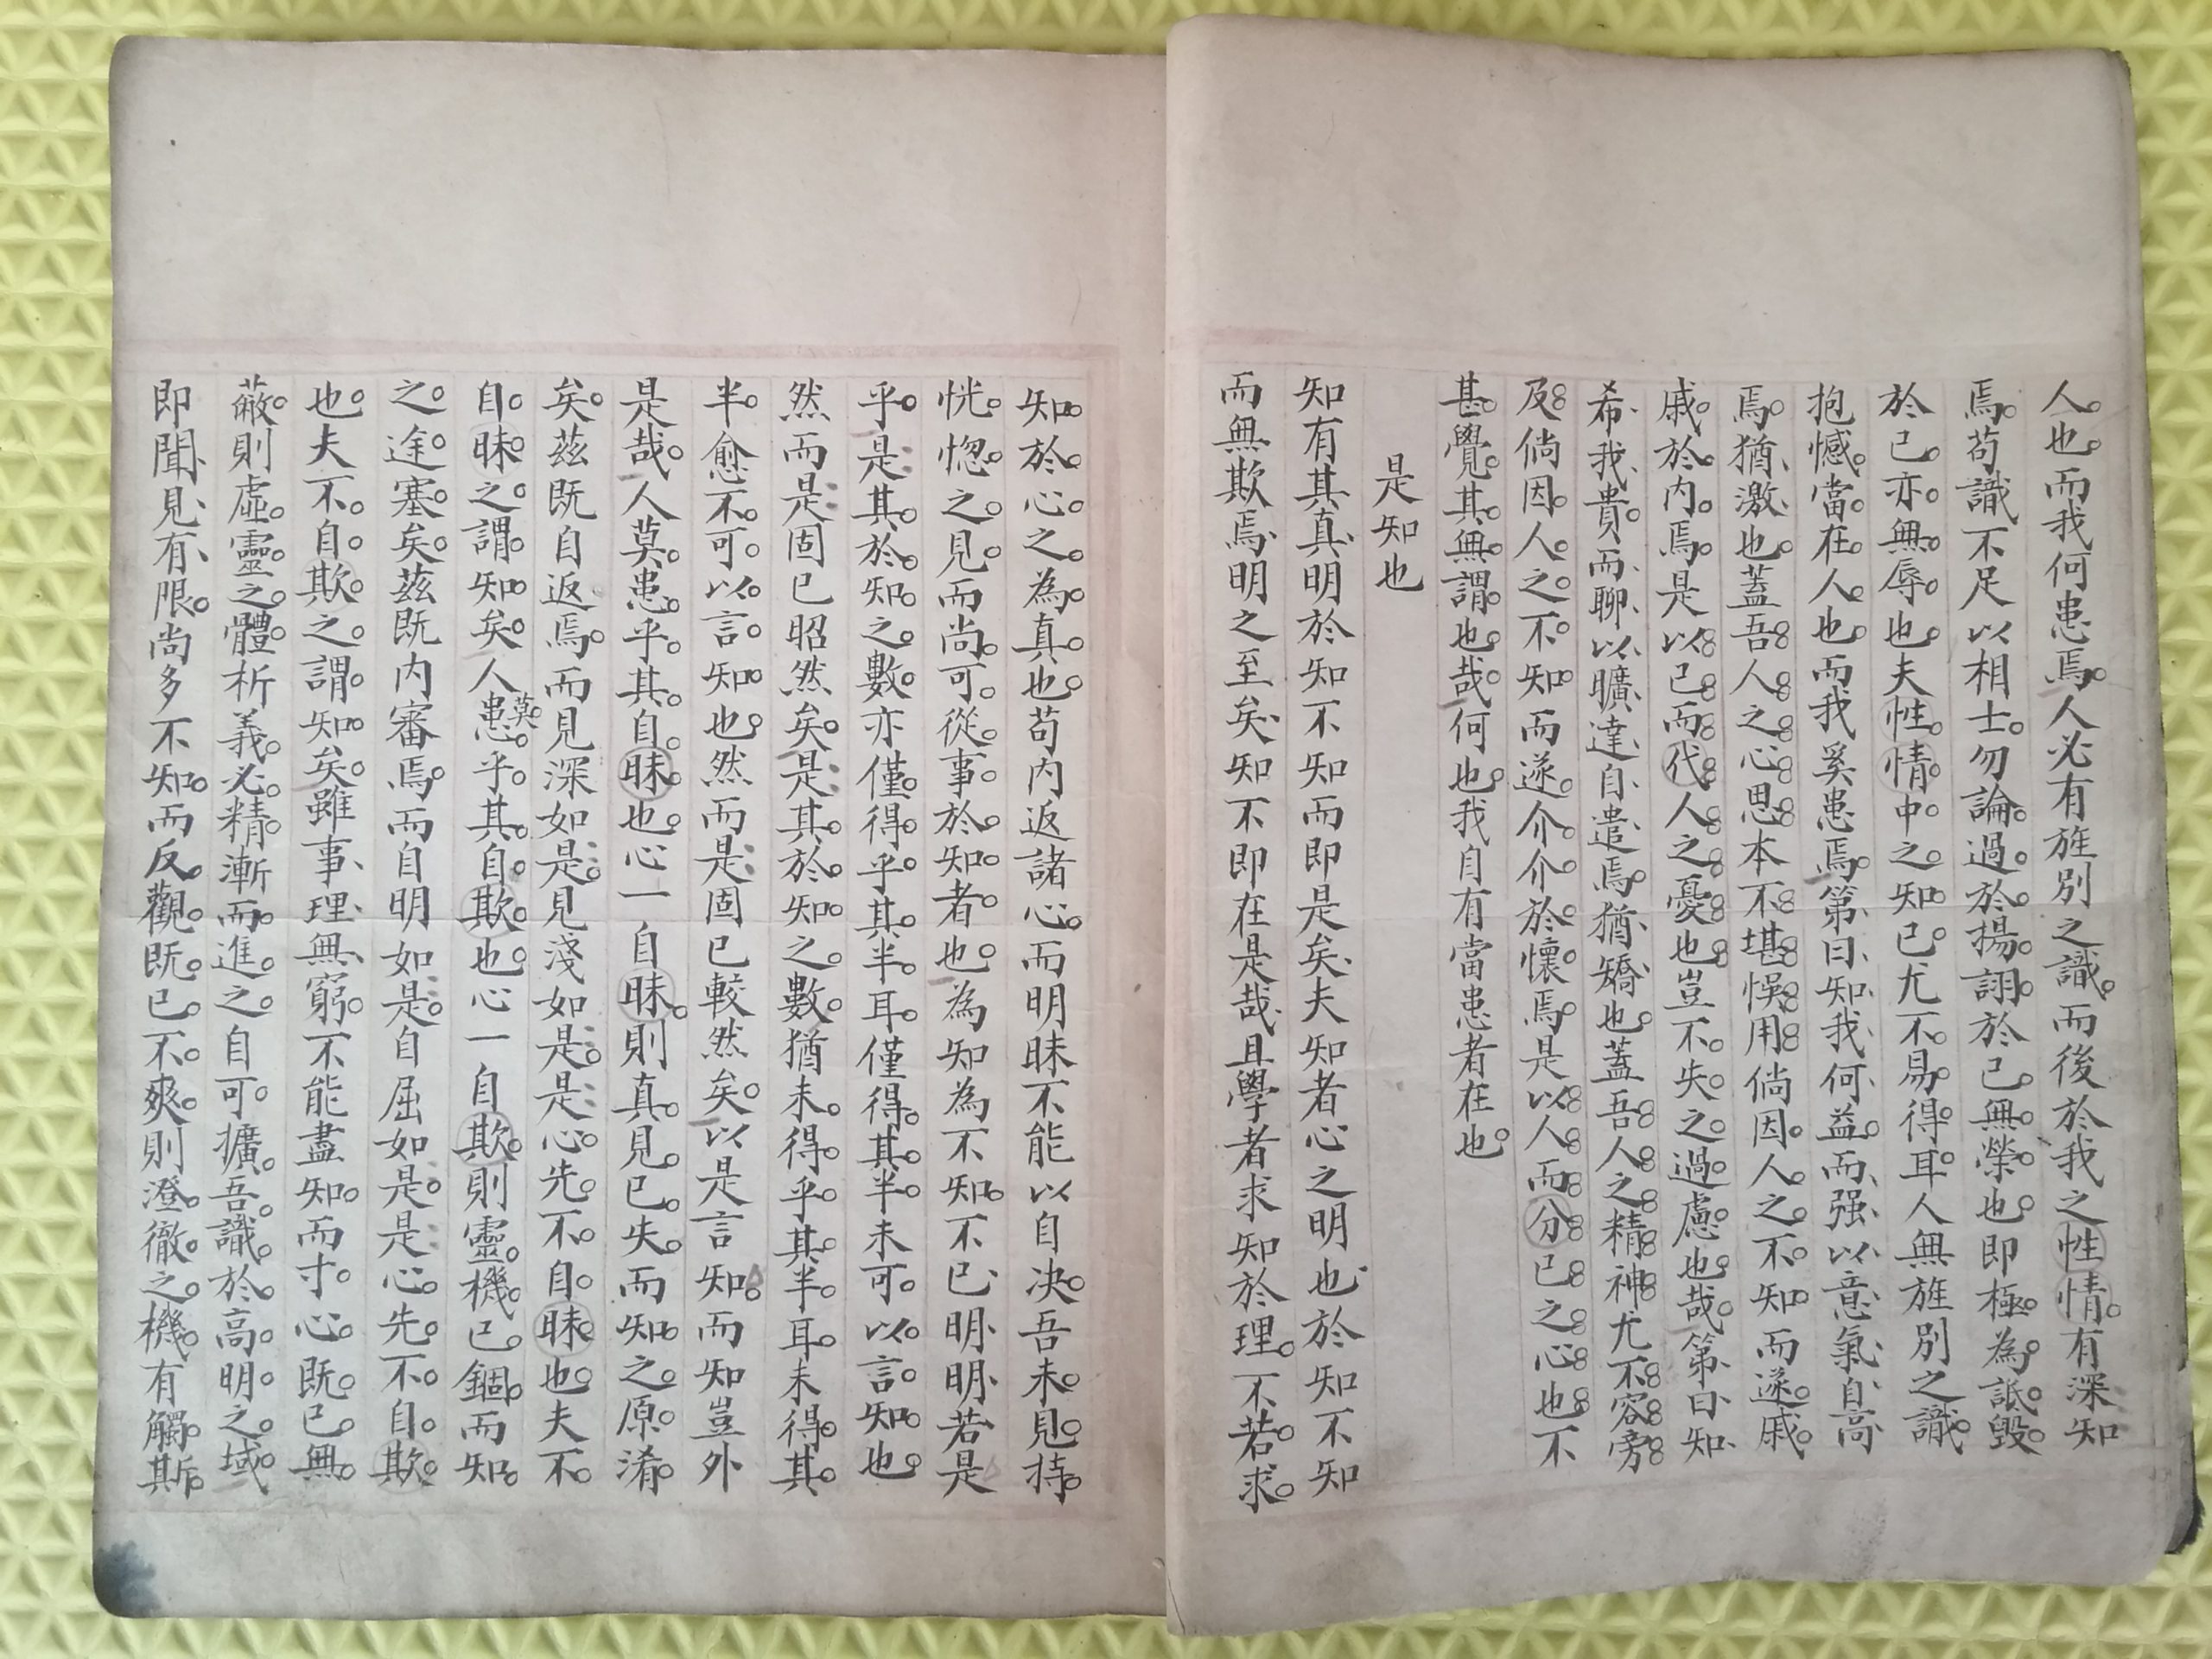 人也而我何患焉人必有旌別之識而後於我之性情有深知
焉苟識不足以相士勿論過於揚詡於己無榮也即極為詆毀
於己亦無辱也夫性情中之知己尤不易得耳人無旌別之識
抱憾當在人也而我奚患焉第曰知我何益而强以意氣自高
焉猶激也蓋吾人之心思本不堪悞用倘因人之不知而遂戚
戚於内焉是以己而代人之憂也豈不失之過慮也哉第曰知
希我貴而聊以曠達自遣焉猶矯也蓋吾人之精神尤不容旁
及倘因人之不知而遂介介於懷焉是以人而分己之心也不
甚覺其無謂也哉何也我自有當患者在也
是知也
知有其真明於知不知而即是矣夫知者心之明也於知不知
而無欺焉明之至矣知不即在是哉且學者求知於理不若求
知於心之為真也苟内返諸心而明昧不能以自决吾未見持
恍惚之見而尚可從事於知者也為知為不知不已明明若是
乎是其於知之數亦僅得乎其半耳僅得其半未可以言知也
然而是固已昭然矣是其於知之數猶未得乎其半耳未得其
半愈不可以言知也然而是固已較然矣以是言知而知豈外
是哉人莫患乎其自昧也心一自昧則真見已失而知之原淆
矣茲既自返焉而見深如是見淺如是是心先不自昧也夫不
自昧之謂知矣人莫患乎其自欺也心一自欺則靈機已錮而知
之途塞矣茲既内審焉而自明如是自屈如是是心先不自欺
也夫不自欺之謂知矣雖事理無窮不能盡知而寸心既已無
蔽則虛靈之體析義必精漸而進之自可擴吾識於高明之域
即聞見有限尚多不知而反觀既已不爽則澄徹之機有觸斯